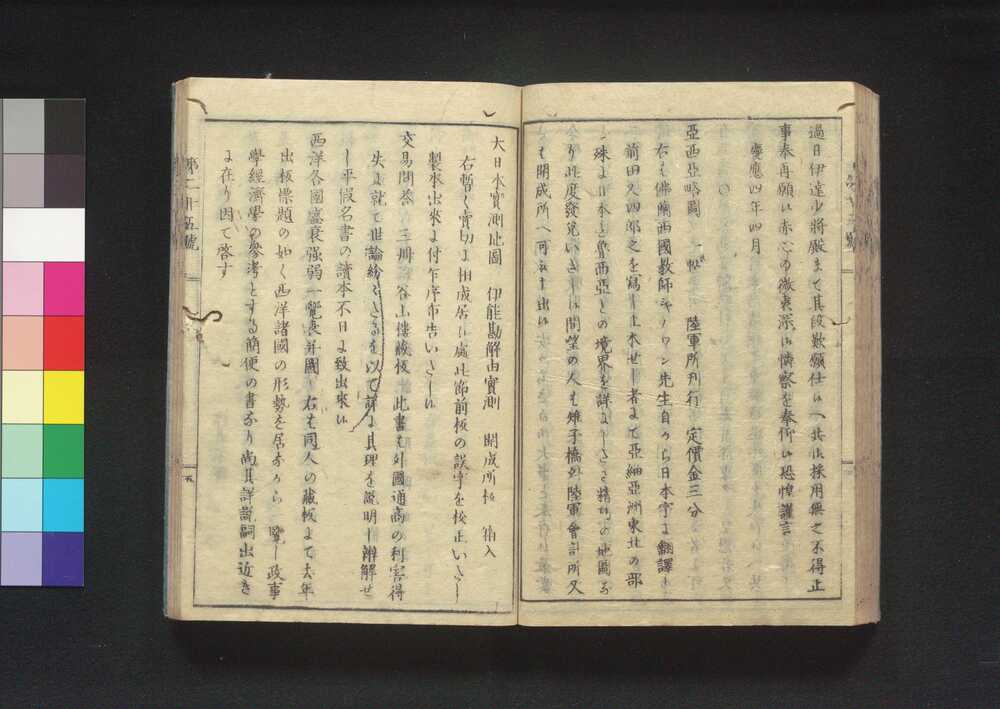 過日伊達少將殿まで其段歎願仕候へ共御採用無之不得止
事奉再願候赤心の微衷深御憐察を奉仰候恐惶謹言
慶應四年四月
亞西亞略圖 一帖 陸軍所刊行 定價金三分
右は佛蘭西國教師シヤノワン先生自から日本字に翻譯し
前田又四郎之を寫し上木せし者にて亞細亞洲東北の部
殊に日本と魯西亞との境界を詳にしたる精巧の地圖な
り此度發兌いたし候間望の人は雉子橋外陸軍會計所又
は開成所へ可申出候
大日本實測地圖 伊能勘解由實測 開成所板 箱入
右暫く賣切に相成居候處此節前板の誤字を校正いたし
製本出來に付乍序布告いたし候
交易問答 三卅 谷山樓藏板 此書は外國通商の利害得
失に就て世論紛々たるを以て詳に其理を説明し辨解せ
し平假名書の讀本不日に致出來候
西洋各國盛衰强弱一覽表并圖 右は同人の藏板にて去年
出板標題の如く西洋諸國の形勢を居ながら一覽し政事
學經濟學の參考とする簡便の書なり尚其詳説嗣出近き
に在り因て啓す
第二十五號
五